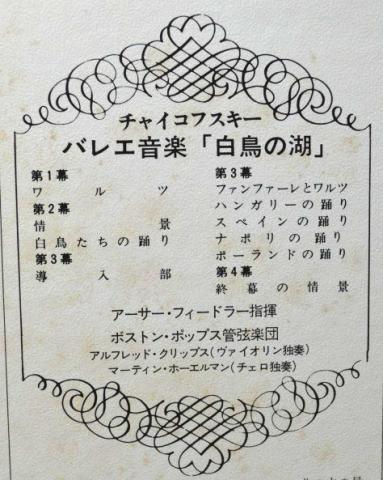 チャイコフスキー
バレエ音楽「白鳥の湖」
第1幕
ワルツ
第2幕
情景
白鳥たちの踊り
第3幕
導入部
第3幕
ファンファーレとワルツ
ハンガリーの踊り
スペインの踊り
ナポリの踊り
ポーランドの踊り
第4幕
終幕の情景
アーサー・フィードラー指揮
ボストン・ポップス管弦楽団
アルフレッド・クリップス(ヴァイオリン独奏)
マーティン・ホーエルマン(チェロ独奏)